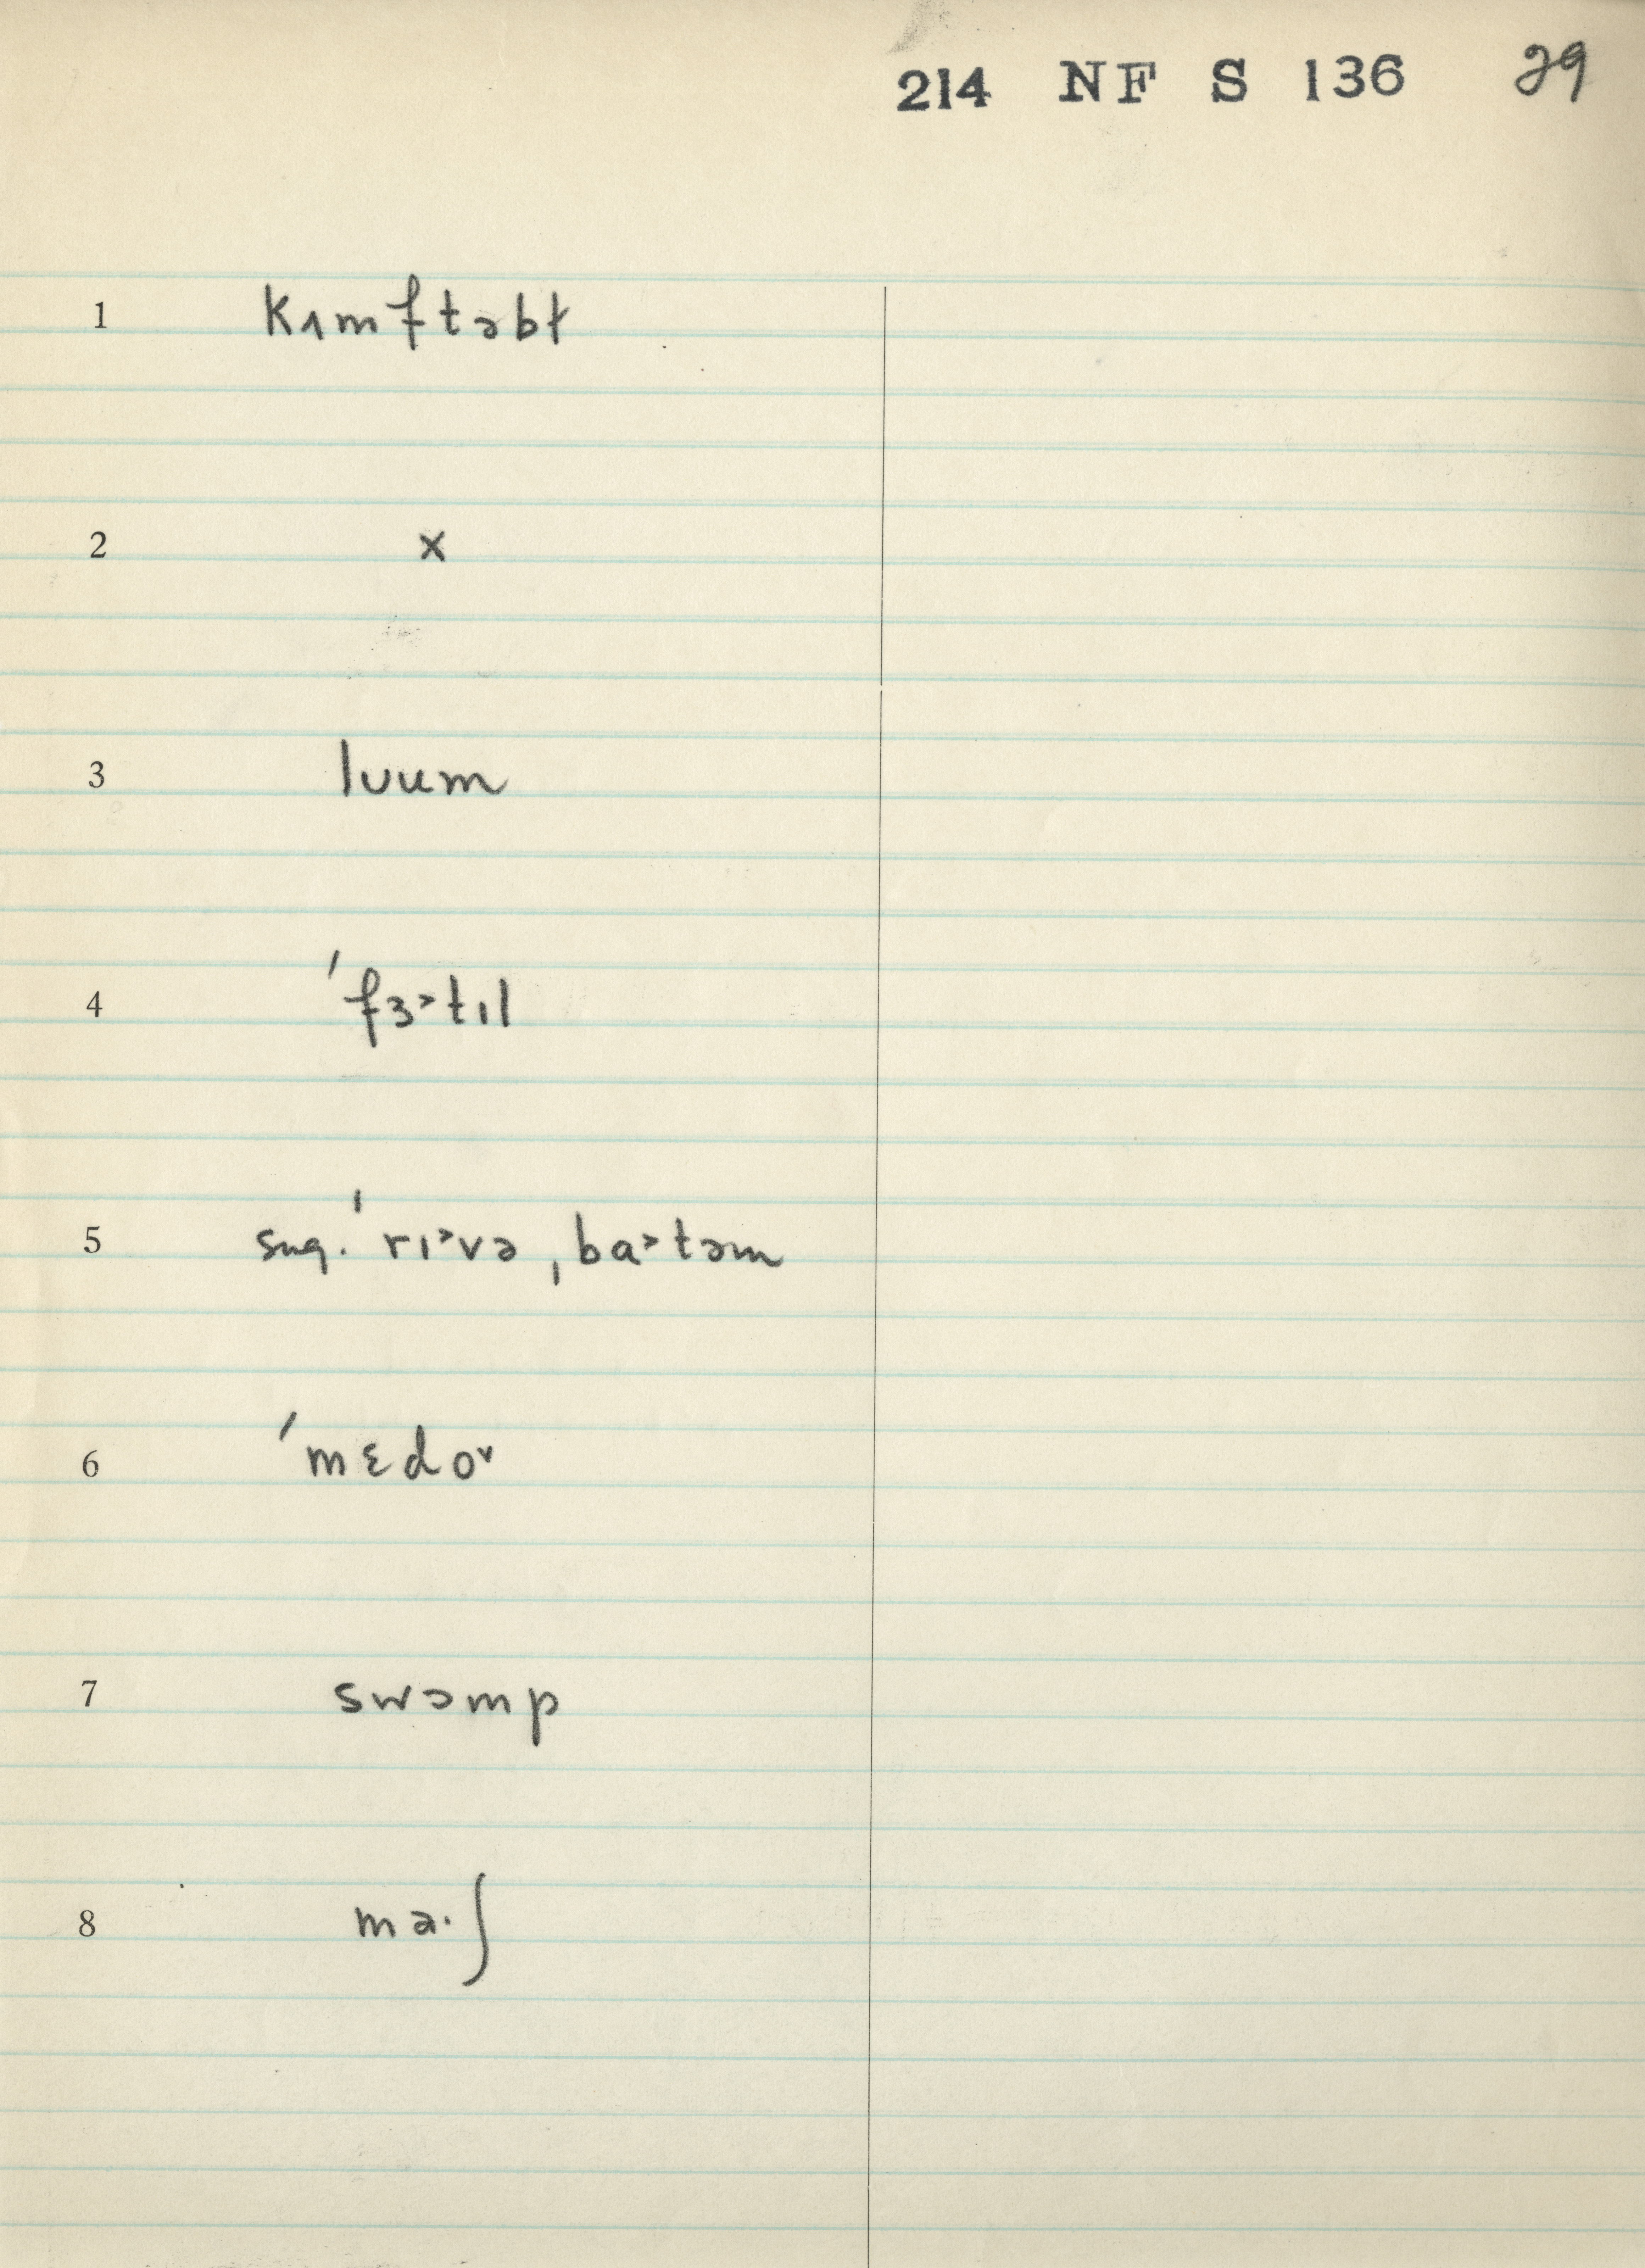 214 NF S 136 29
1 kʌmftəbɫ
2 x
3 lʊum
4 ˈfɜ˃tɪl
5 sug. ˈrɪ˃və ˌba˃təm
6 ˈmɛdoᵛ
7 swɔmp
8 ma·ʃ